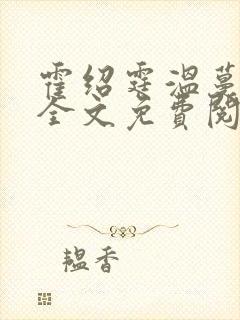 霍绍霆温蔓
全文免费阅
韫香